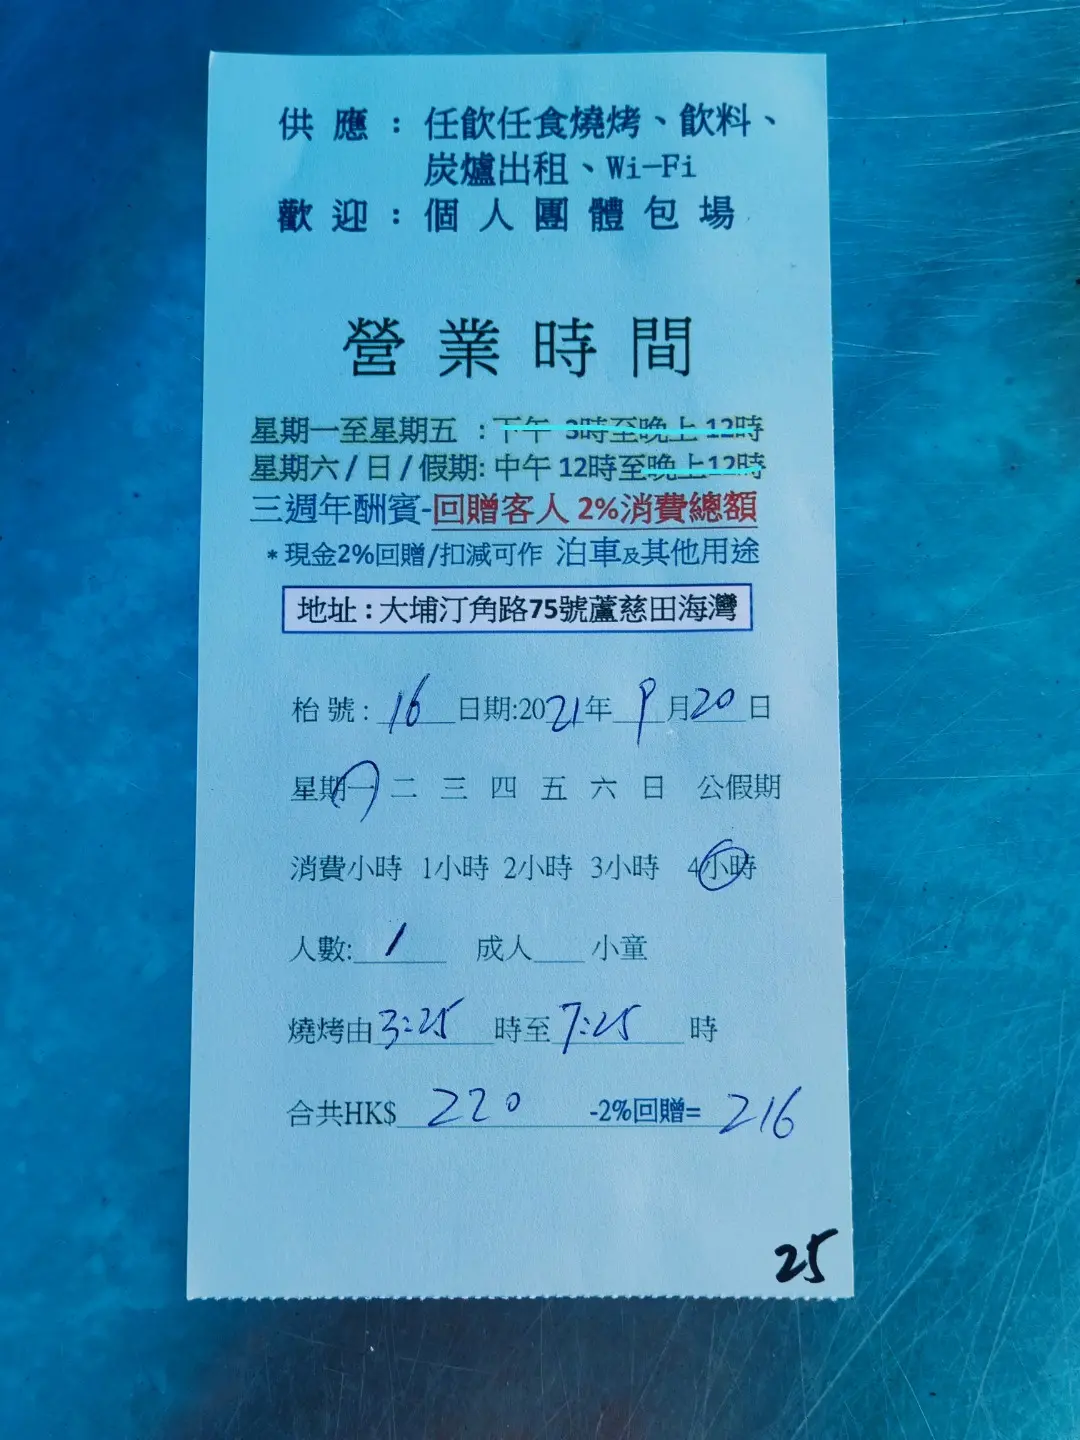 供應：任飲任食燒烤、飲料、
炭爐出租、Wi-Fi
歡迎：個人團體包場
營業時間
星期一至星期五 : 下午 3時至晚上 12時
星期六 / 日 / 假期: 中午 12時至晚上12時
三週年酬賓-回贈客人 2%消費總額
*現金2%回贈/扣減可作 泊車及其他用途
地址 : 大埔汀角路75號蘆慈田海灣
枱號 : 16 日期:2021年 9月20日
星期一 二 三 四 五 六 日 公假期
消費小時 1小時 2小時 3小時 4小時
人數: 1 成人 小童
燒烤由 3:25 時至 7:25 時
合共HK$ 220 -2%回贈= 216
25